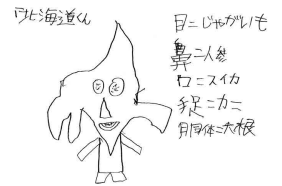 北海道くん
目=じゃがいも
鼻=人参
口=スイカ
足=カニ
胴体=大根